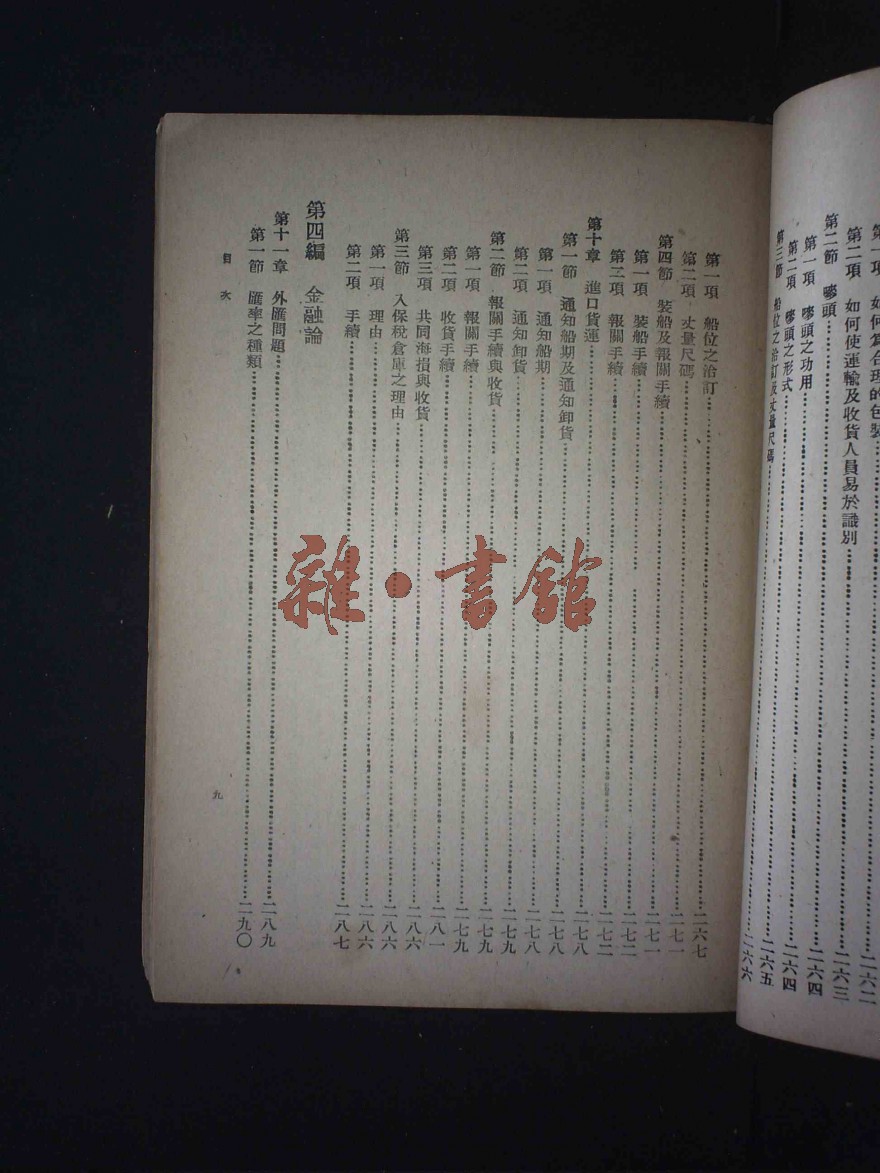 如何算合理的包裝……二六二
第二項 如何使運輸及收貨人員易於識別……二六三
第二節 嘜頭……二六四
第一項 嘜頭之功用……二六四
第二項 嘜頭之形式……二六五
第三節 船位之洽訂及丈量尺碼……二六六
第一項 船位之洽訂……二六七
第二項 丈量尺碼……二七一
第四節 裝船及報關手續……二七一
第一項 裝船手續……二七二
第二項 報關手續……二七二
第十章 進口貨運……二七八
第一節 通知船期及通知卸貨……二七八
第一項 通知船期……二七八
第二項 通知卸貨……二七九
第二節 報關手續與收貨……二七九
第一項 報關手續……二七九
第二項 收貨手續……二八一
第三項 共同海損與收貨……二八六
第三節 入保稅倉庫之理由……二八六
第一項 理由……二八六
第二項 手續……二八七
第四編 金融論
第十一章 外匯問題……二八九
第一節 匯率之種類……二九〇
目次
九
雜·書館